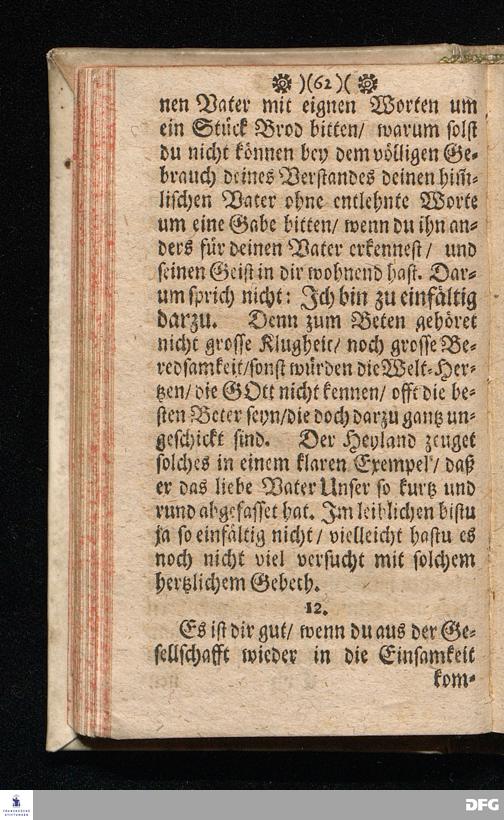 )(62)(
nen Vater mit eignen Worten um
ein Stück Brod bitten/ warum solst
du nicht können bey dem völligen Ge-
brauch deines Verstandes deinen him̃-
lischen Vater ohne entlehnte Worte
um eine Gabe bitten/ wenn du ihn an-
ders für deinen Vater erkennest/ und
seinen Geist in dir wohnend hast. Dar-
um sprich nicht: Ich bin zu einfältig
darzu. Denn zum Beten gehöret
nicht grosse Klugheit/ noch grosse Be-
redsamkeit/ sonst würden die Welt-Her-
tzen/ die GOtt nicht kennen/ offt die be-
sten Beter seyn/ die doch darzu gantz un-
geschickt sind. Der Heyland zeuget
solches in einem klaren Exempel/ daß
er das liebe Vater Unser so kurtz und
rund abgefasset hat. Im leiblichen bistu
ja so einfältig nicht/ vielleicht hastu es
noch nicht viel versucht mit solchem
hertzlichem Gebeth.
12.
Es ist dir gut/ wenn du aus der Ge-
sellschafft wieder in die Einsamkeit
kom-
FRANCKESCHE
STIFTUNGEN
DFG